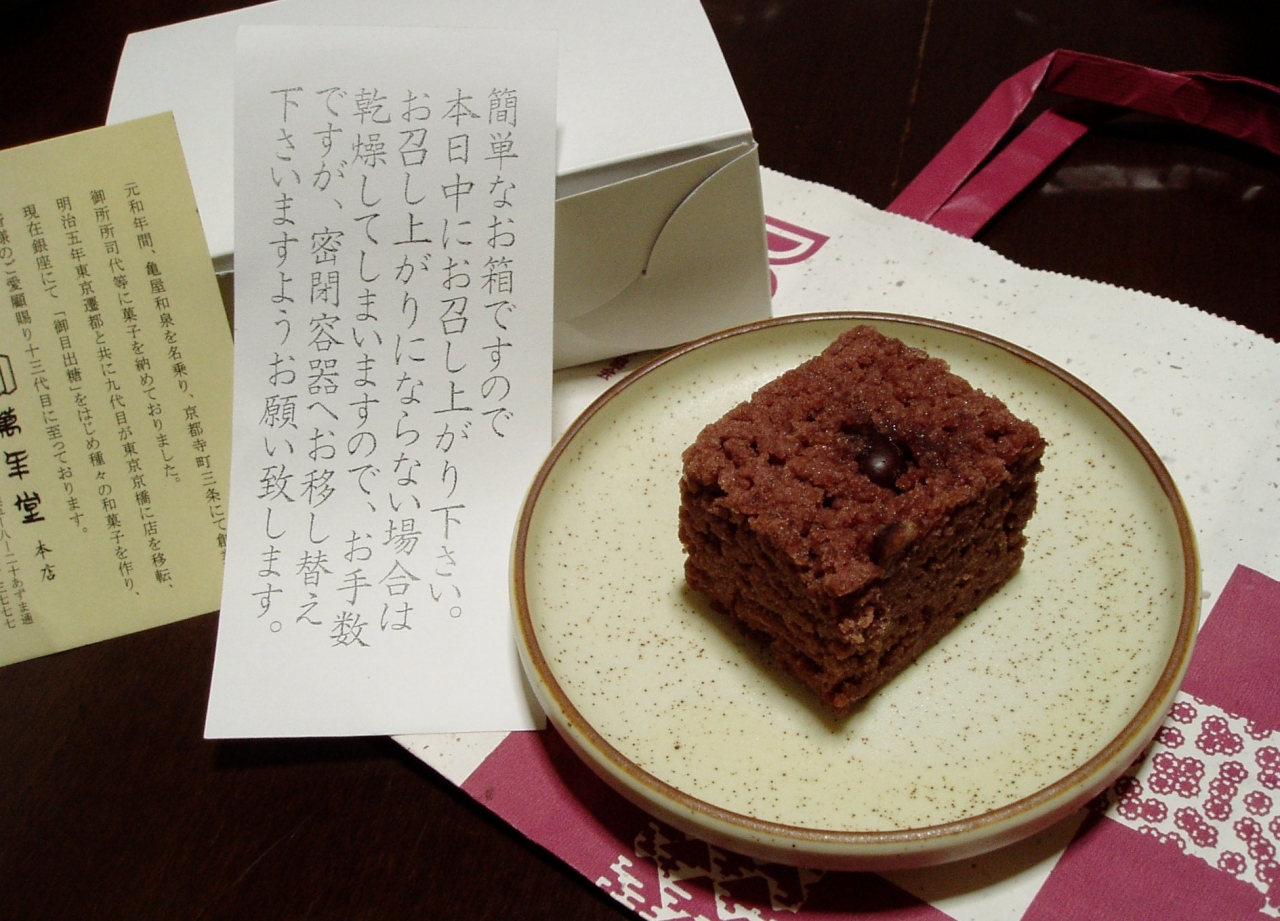 簡単なお箱ですので
本日中にお召し上がり下さい。
お召し上がりにならない場合は
乾燥してしまいますので、お手数
ですが、密閉容器へお移し替え
下さいますようお願い致します。
元和年間、亀屋和泉を名乗り、京都寺町三条にて創
御所所司代等に菓子を納めておりました。
明治五年東京遷都と共に九代目が東京京橋に店を移転、
現在銀座にて「御目出糖」をはじめ種々の和菓子を作り、
皆様のご愛顧賜り十三代目に至っております。
萬年堂 本店